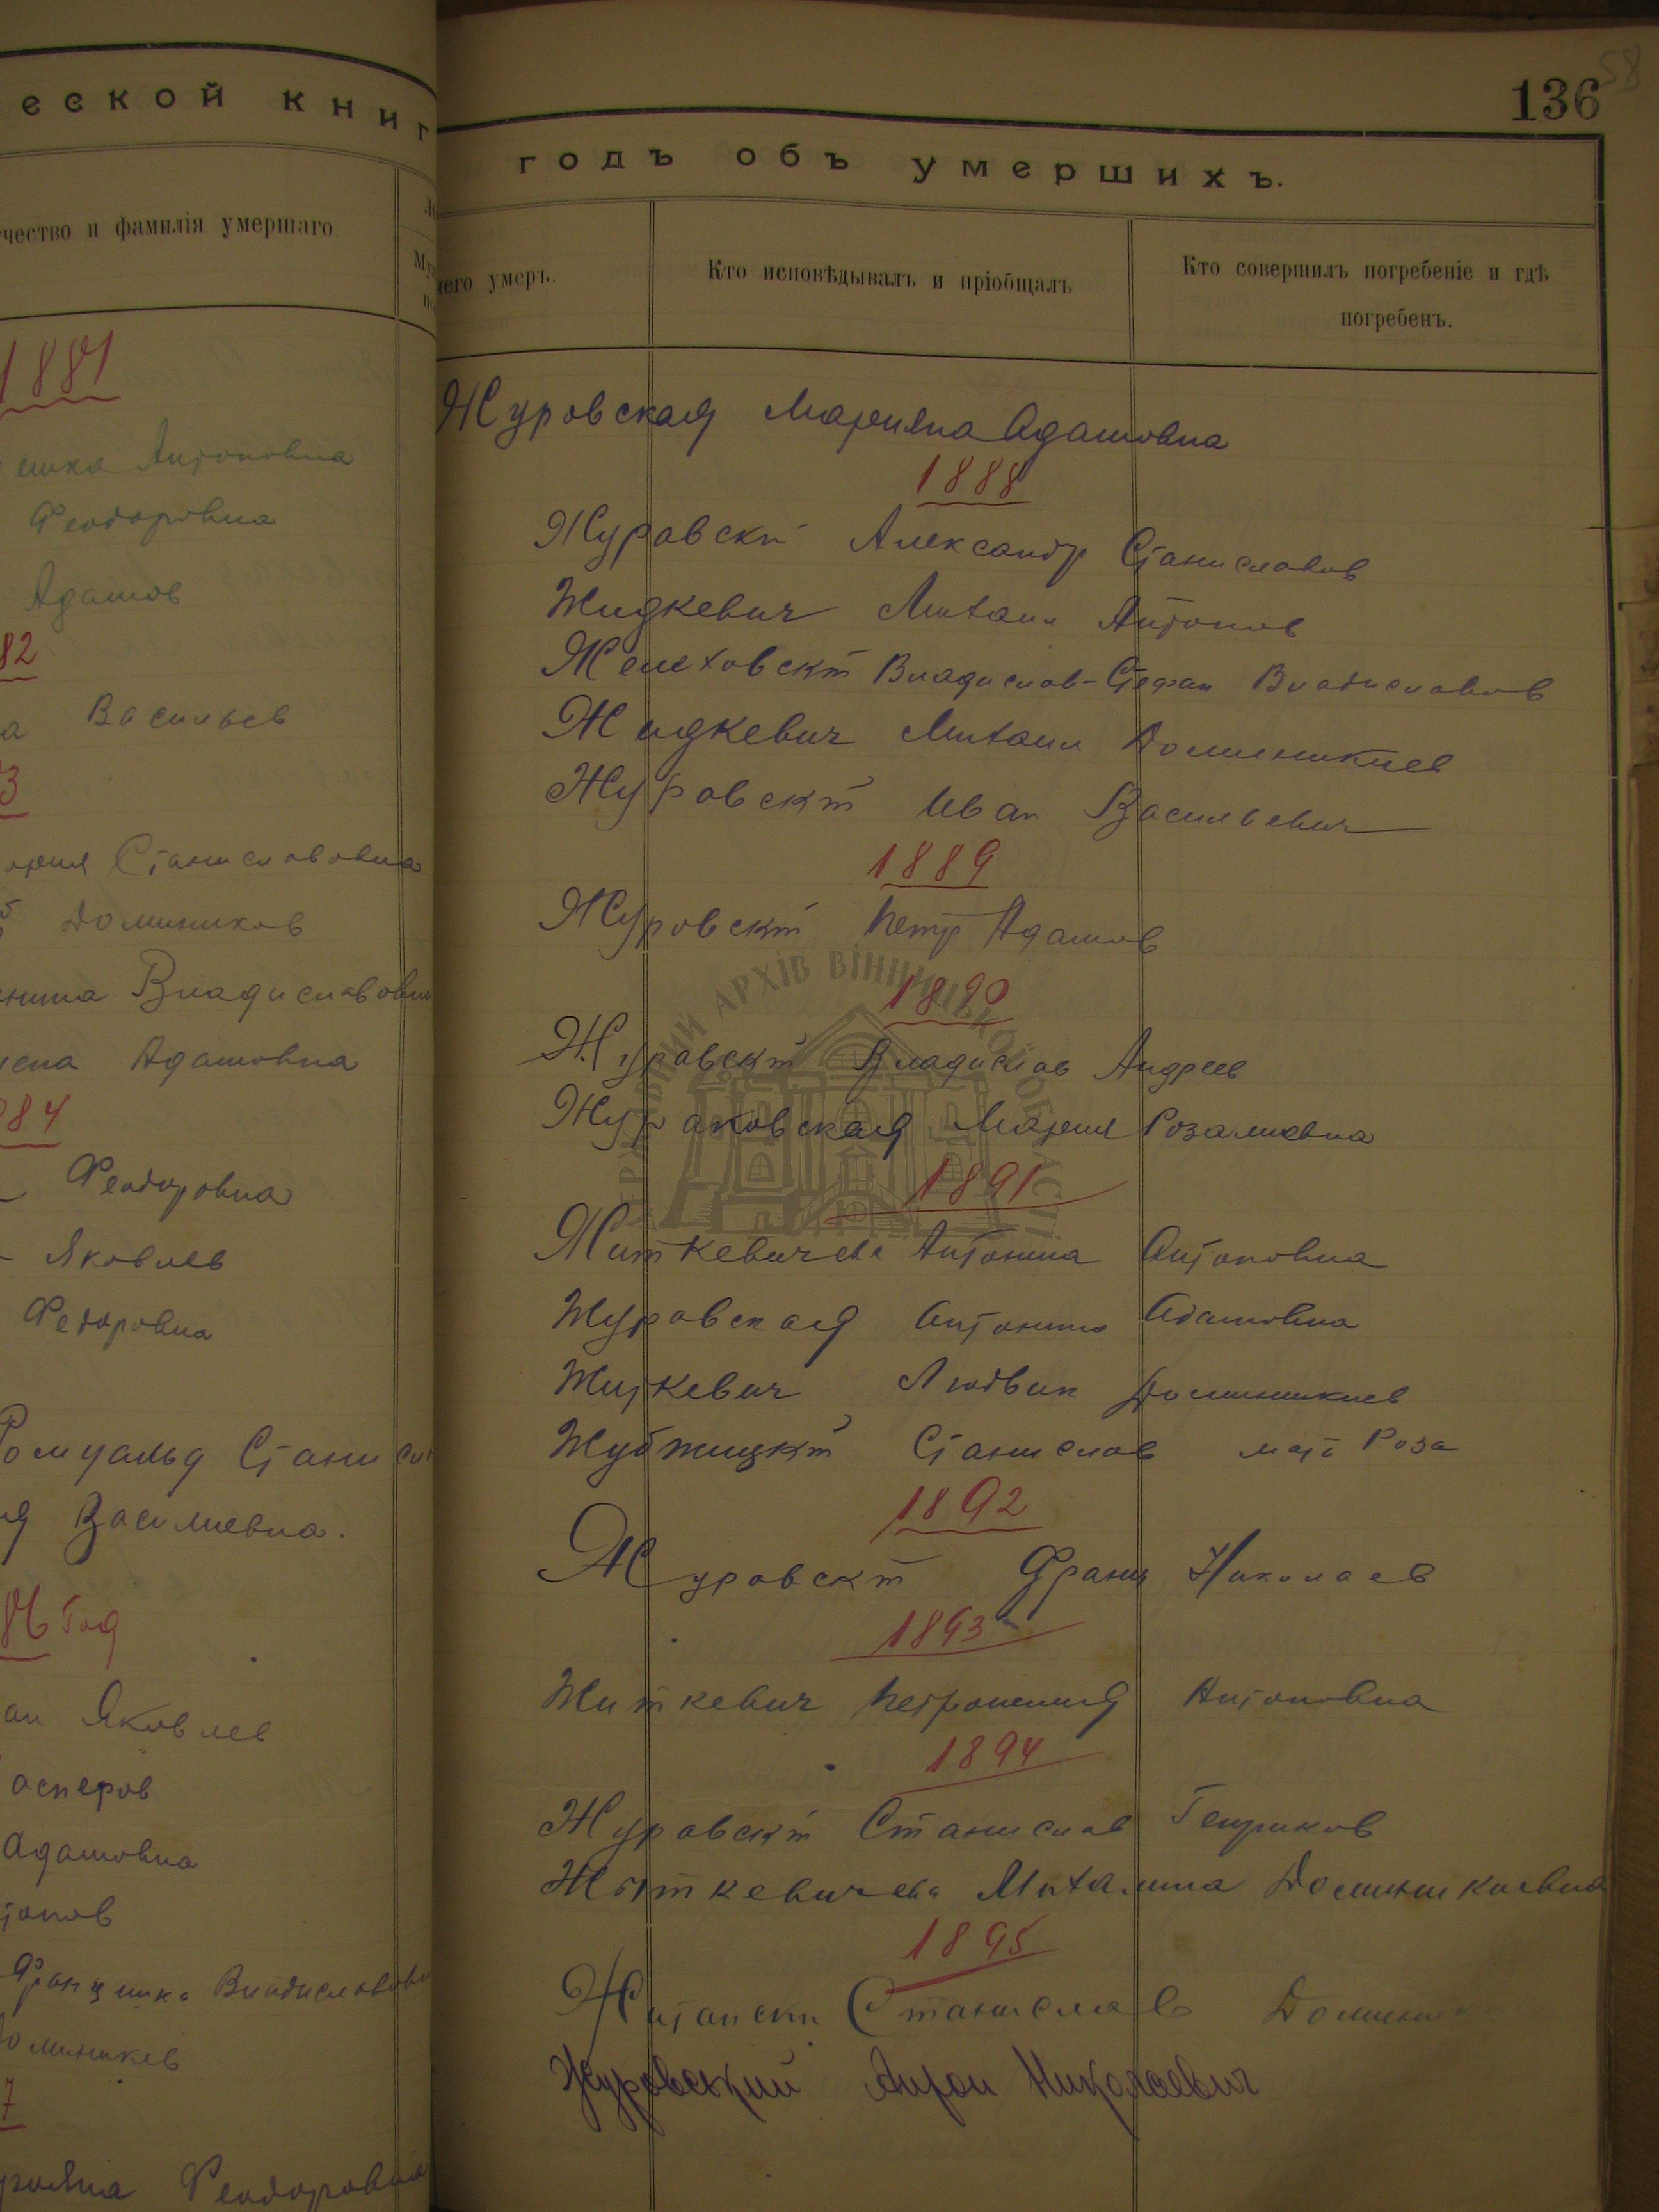 еской книг
чество и фамилія умершаго.
1881
Антоновна
Феодоровна
Адамов
82
Васильев
3
Станиславовна
Домиников
Владиславовна
Адамовна
84
Феодоровна
Яковлев
Федоровна
Ромуальд Станисл
Василиевна.
86 Год
ан Яковлев
асперов
Адамовна
тонов
Францишка Владиславовн
оминикев
7
Феодоровна
136
58
годъ объ умершихъ.
чего умеръ.
Кто исповѣдывалъ и пріобщалъ
Кто совершилъ погребеніе и гдѣ
погребенъ.
Журовская Марияна Адамовна
1888
Журавски Александр Станиславов
Жидкевич Михаил Антонов
Желеховскій Владислав-Стефан Владиславов
Жидкевич Михаил Доминикиев
Журовскій Иван Васильевич
1889
Журовскій Петр Адамов
1890
Журавскій Владислав Андреев
Жураковская Мария Розалиевна
1891
Житкевичева Антонина Антоновна
Журавская Антонина Адамовна
Житкевич Людвик Доминикиев
Жубжицкій Станислав мать Роза
1892
Журавскій Франц Николаев
1893
Житкевич Петронелия Антоновна
1894
Журавскій Станислав Генриков
Житкевичева Михалина Доминикиевна
1895
Житански Станислав Домини
Журовский Антон Николаевич
ДЕРЖАВНИЙ АРХІВ ВІННИЦЬКОЇ ОБЛАСТІ